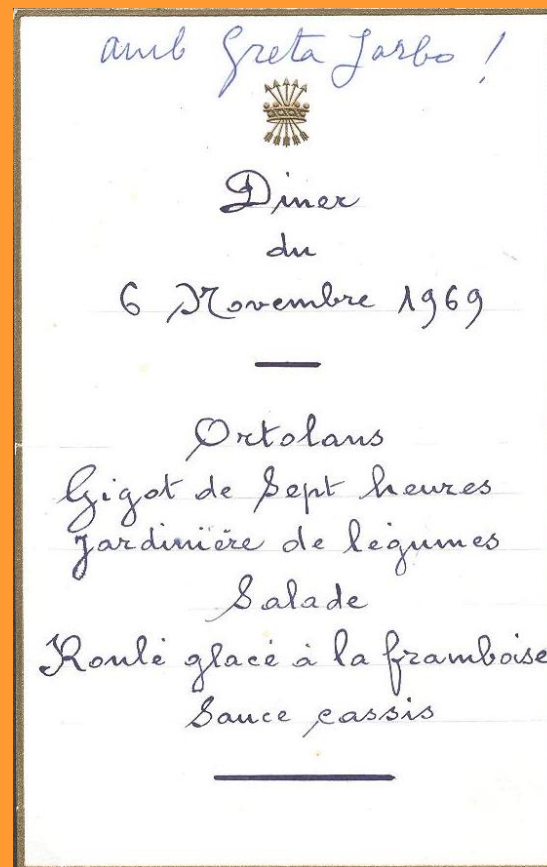 amb Greta Garbo !
Dîner
du
6 Novembre 1969
Ortolans
Gigot de Sept heures
Jardinière de légumes
Salade
Roulé glacé à la framboise
Sauce cassis